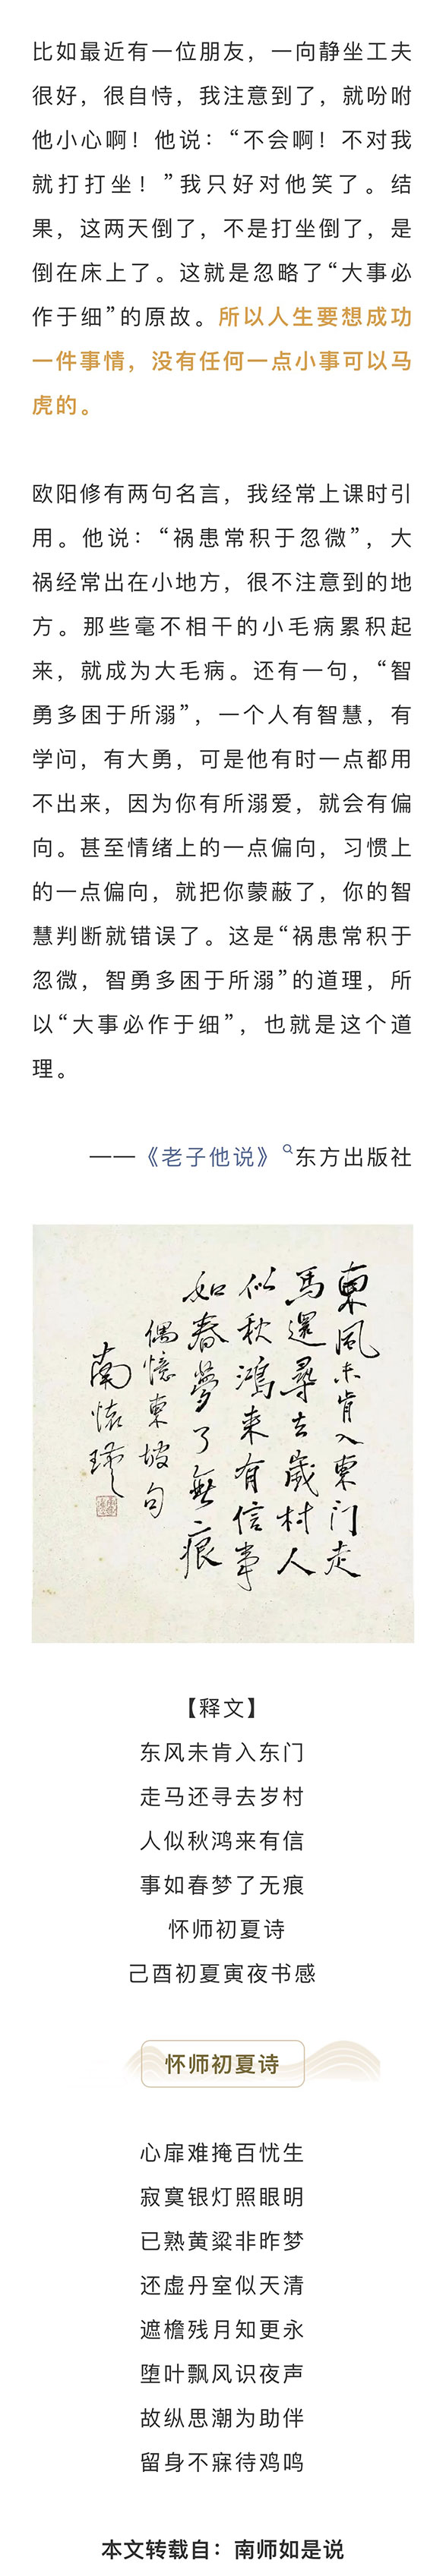 比如最近有一位朋友，一向静坐工夫
很好，很自恃，我注意到了，就吩咐
他小心啊！他说：“不会啊！不对我
就打打坐！”我只好对他笑了。结
果，这两天倒了，不是打坐倒了，是
倒在床上了。这就是忽略了“大事必
作于细”的原故。所以人生要想成功
一件事情，没有任何一点小事可以马
虎的。
欧阳修有两句名言，我经常上课时引
用。他说：“祸患常积于忽微”，大
祸经常出在小地方，很不注意到的地
方。那些毫不相干的小毛病累积起
来，就成为大毛病。还有一句，“智
勇多困于所溺”，一个人有智慧，有
学问，有大勇，可是他有时一点都用
不出来，因为你有所溺爱，就会有偏
向。甚至情绪上的一点偏向，习惯上
的一点偏向，就把你蒙蔽了，你的智
慧判断就错误了。这是“祸患常积于
忽微，智勇多困于所溺”的道理，所
以“大事必作于细”，也就是这个道
理。
——《老子他说》东方出版社
東風未肯入東门走
馬還尋去歲村人
似秋鴻来有信事
如春夢了無痕
偶憶東坡句
南怀瑾
【释文】
东风未肯入东门
走马还寻去岁村
人似秋鸿来有信
事如春梦了无痕
怀师初夏诗
己酉初夏寅夜书感
怀师初夏诗
心扉难掩百忧生
寂寞银灯照眼明
已熟黄粱非昨梦
还虚丹室似天清
遮檐残月知更永
堕叶飘风识夜声
故纵思潮为助伴
留身不寐待鸡鸣
本文转载自：南师如是说